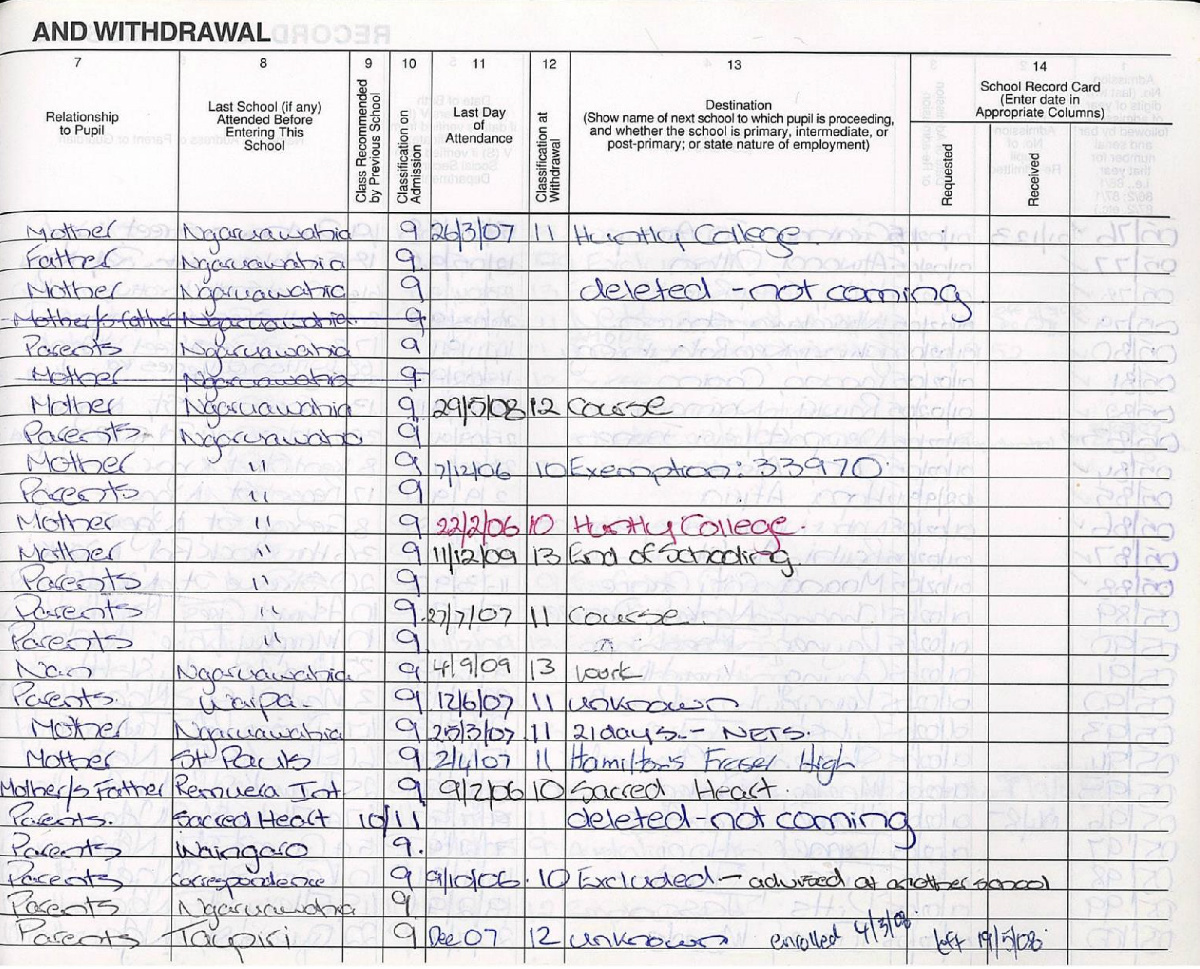 AND WITHDRAWAL
7 8 9 10 11 12 13 14
Relationship to Pupil
Last School (if any) Attended Before Entering This School
Class Recommended by Previous School
Classification on Admission
Last Day of Attendance
Classification at Withdrawal
Destination (Show name of next school to which pupil is proceeding, and whether the school is primary, intermediate, or post-primary; or state nature of employment)
School Record Card (Enter date in Appropriate Columns)
Requested
Received
Mother Ngaruawahia 9 26/3/07 11 Huntly College.
Father Ngaruawahia 9
Mother Ngaruawahia 9 deleted - not coming
Mother/s father Ngaruawahia. 9
Parents Ngaruawahia 9
Mother Ngaruawahia 9
Mother Ngaruawahia 9 29/5/08 12 Course
Parents. Ngaruawahia 9
Mother " 9 7/12/06 10 Exemption: 33970.
Parents " 9
Mother " 9 22/2/06 10 Huntly College.
Mother " 9 11/12/09 13 End of Schooling.
Parents " 9
Parents " 9 27/7/07 11 Course.
Parents " 9
Nan Ngaruawahia 9 4/9/09 13 work
Parents. Waipa. 9 12/6/07 11 unknown
Mother Ngaruawahia 9 11 21 days. - NETS.
Mother St Pauls 9 2/4/07 11 Hamilton's Fraser High
Mother/s Father Remuera Int. 9 9/2/06 10 Sacred Heart.
Parents. Sacred Heart 10/11 deleted - not coming
Parents Waingaro 9.
Parents Correspondence 9 9/10/06. 10 Excluded - at another school
Parents Ngaruawahia 9
Parents Taupiri 9 Dec 07 12 unknown enrolled 4/3/08. left 19/5/08.